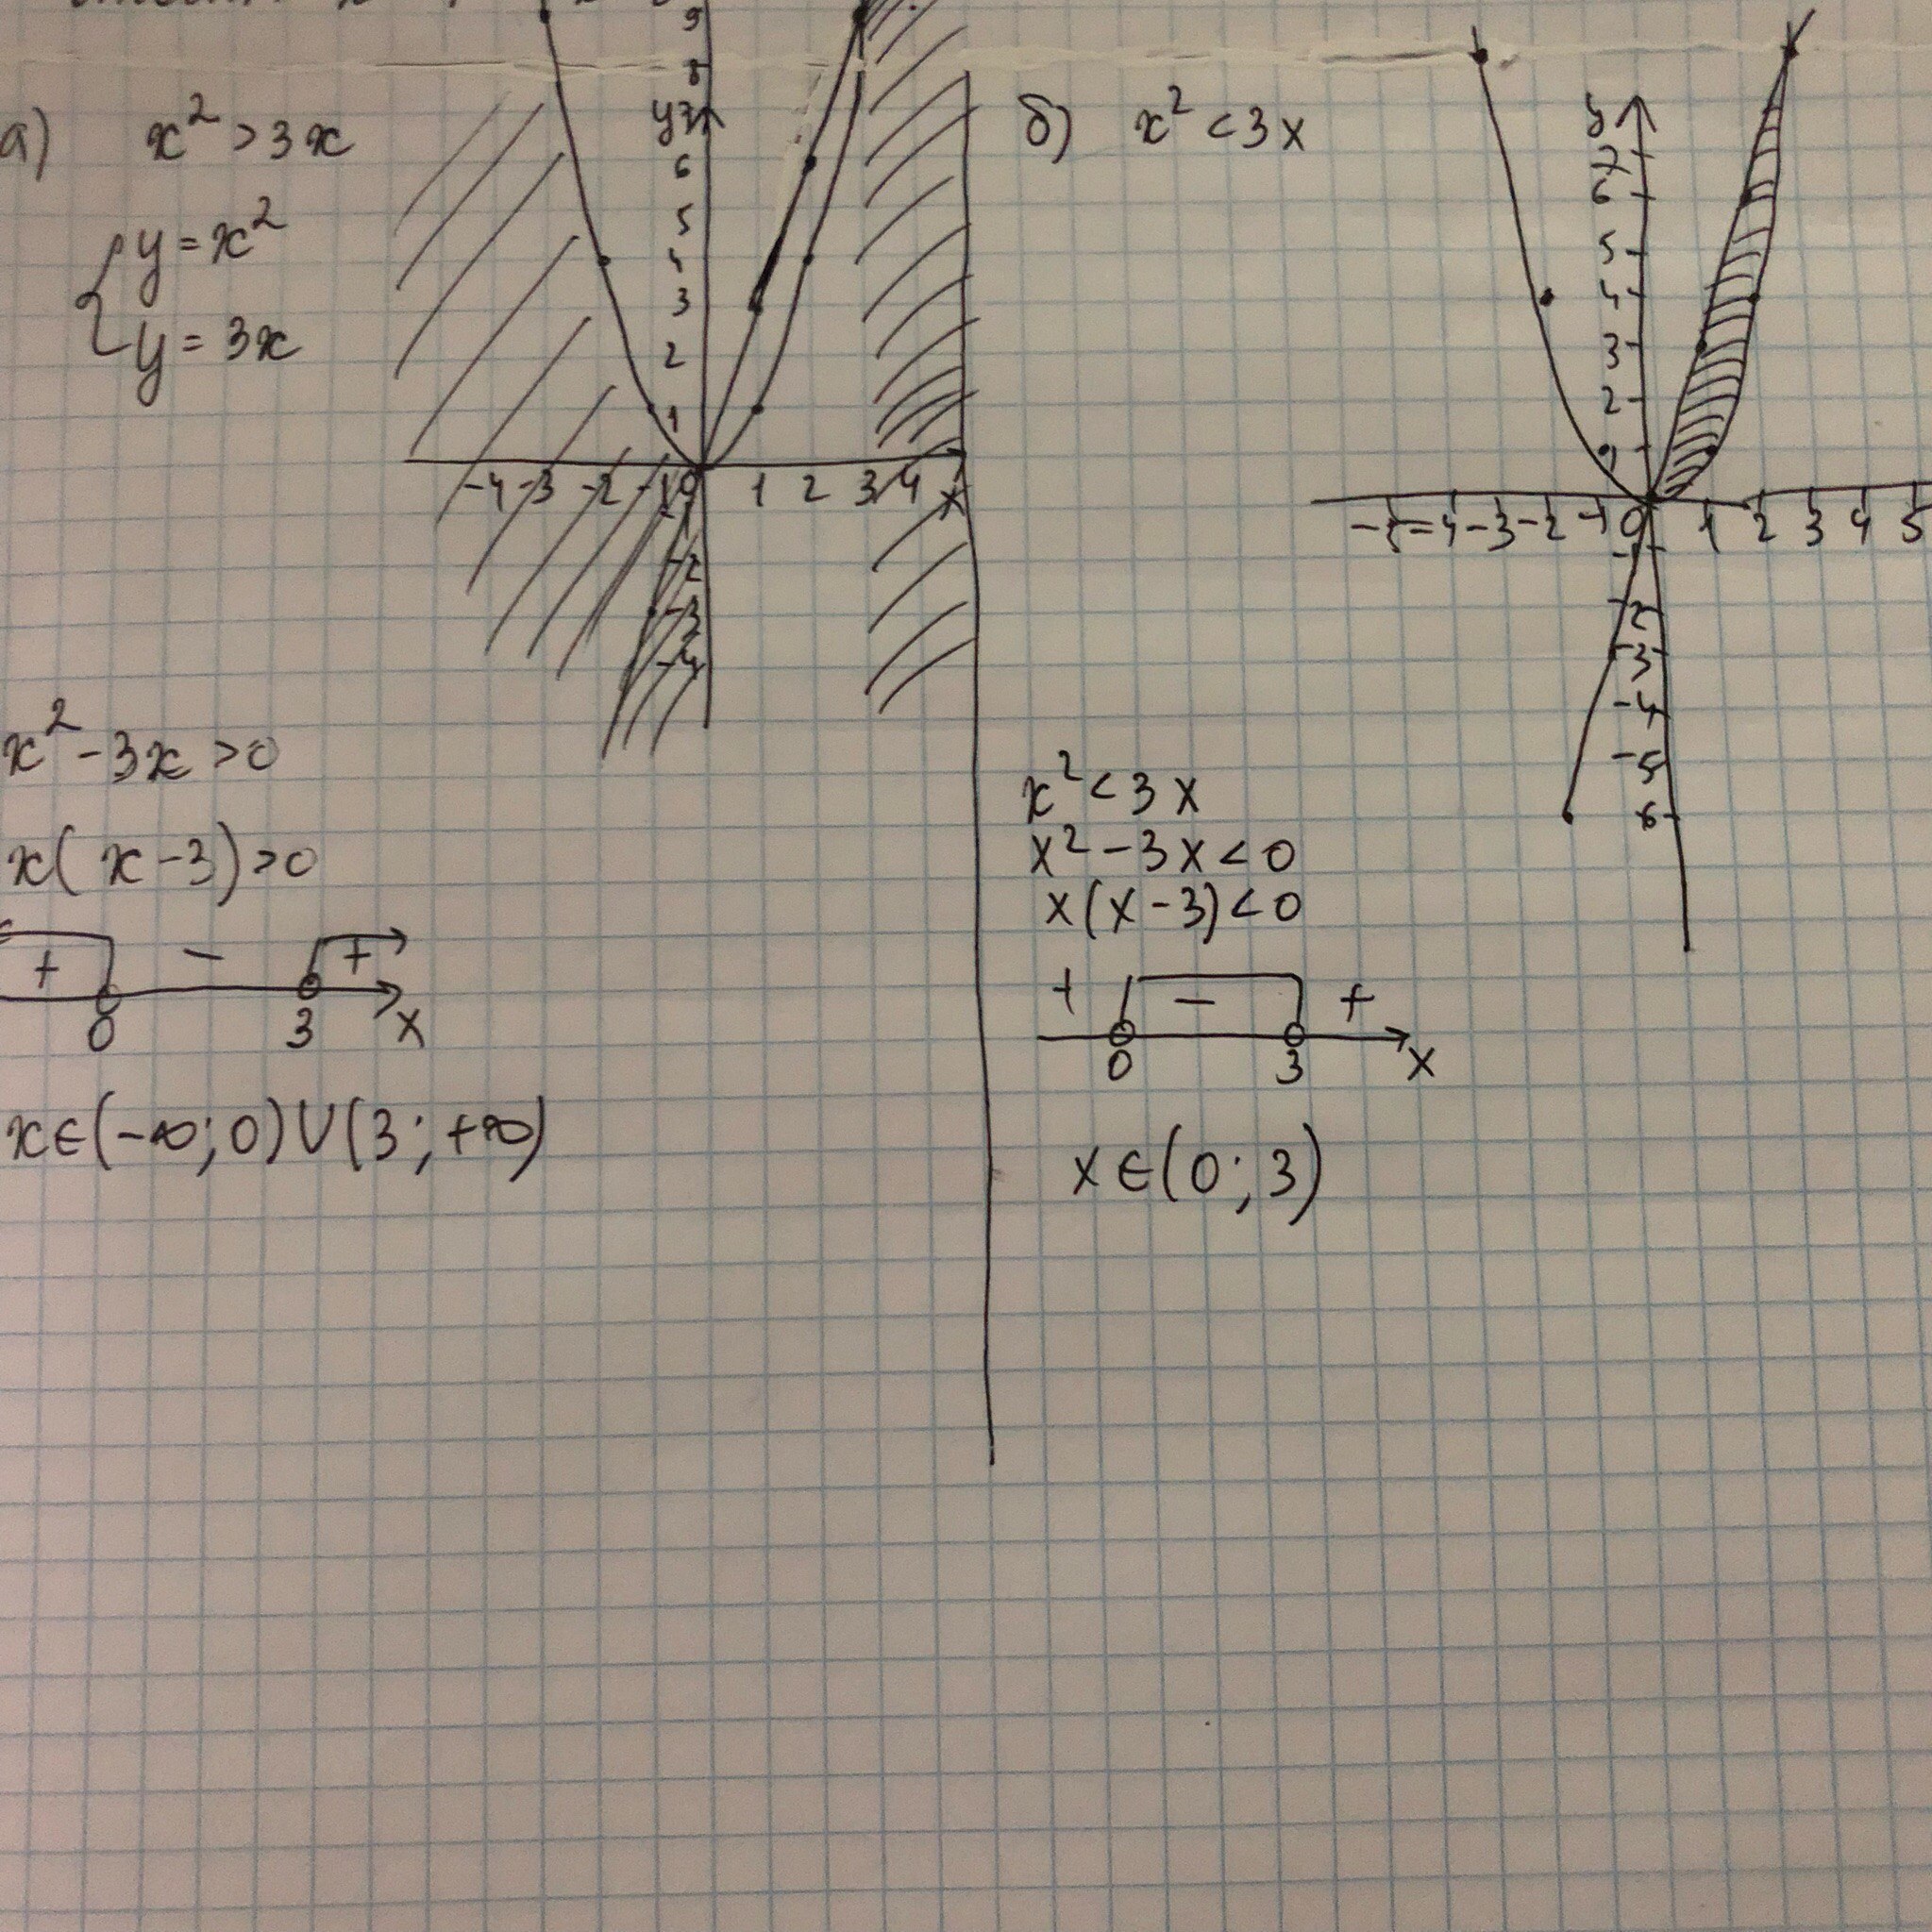 а) x² > 3x
y = x²
y = 3x
9
8
y 7
6
5
4
3
2
1
-4 -3 -2 -1 0 1 2 3 4 x
-2
-3
-4
x² - 3x > 0
x(x - 3) > 0
+ - +
0 3 x
x ∈ (-∞; 0) ∪ (3; +∞)
б) x² < 3x
y
7
6
5
4
3
2
1
-5 -4 -3 -2 -1 0 1 2 3 4 5
-1
-2
-3
-4
-5
-6
x² < 3x
x² - 3x < 0
x(x - 3) < 0
+ - +
0 3 x
x ∈ (0; 3)